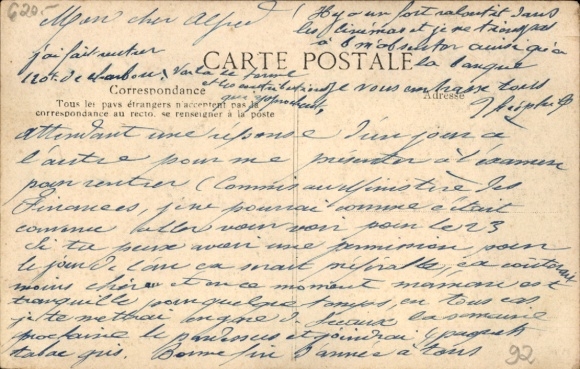 6205
Mon cher Alfred
j'ai fait rentrer
120 k de charbon, voilà le terme
et les contributions
qui approchent,
Il y a un fort ralentit dans
les cinémas et je ne tiens pas
à m'absenter ainsi qu'à
la banque
Je vous embrasse tous
CARTE POSTALE
Correspondance
Adresse
Tous les pays étrangers n'acceptent pas la
correspondance au recto, se renseigner à la poste
attendant une réponse d'un jour à
l'autre pour me présenter à l'examen
pour rentrer Commis au Ministère des
Finances, je ne pourrai comme c'était
convenu aller vous voir pour le 23
Si tu peux avoir une permission pour
le jour de l'an ça serait préférable, ça coûterait
moins cher et en ce moment maman est
tranquille pour quelque temps, en tous cas
je te mettrai en gare de Sceaux la semaine
prochaine le pardessus et joindrai 1 paquet
tabac gris. Bonne fin d'année à tous
92